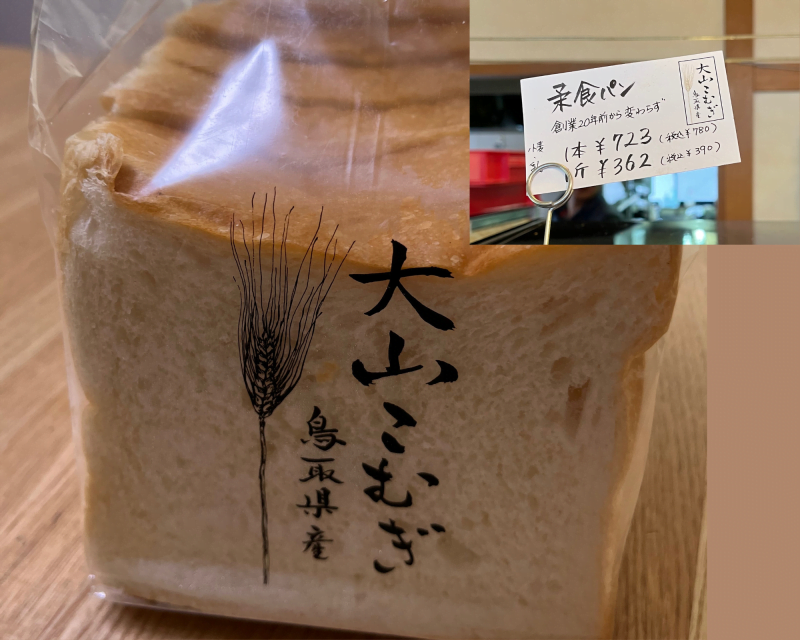 大山こむぎ
鳥取県産
柔食パン
創業20年前から変わらず
1本 ¥723 (税込¥780)
斤 ¥362 (税込¥390)
大山こむぎ
鳥取県産
小麦